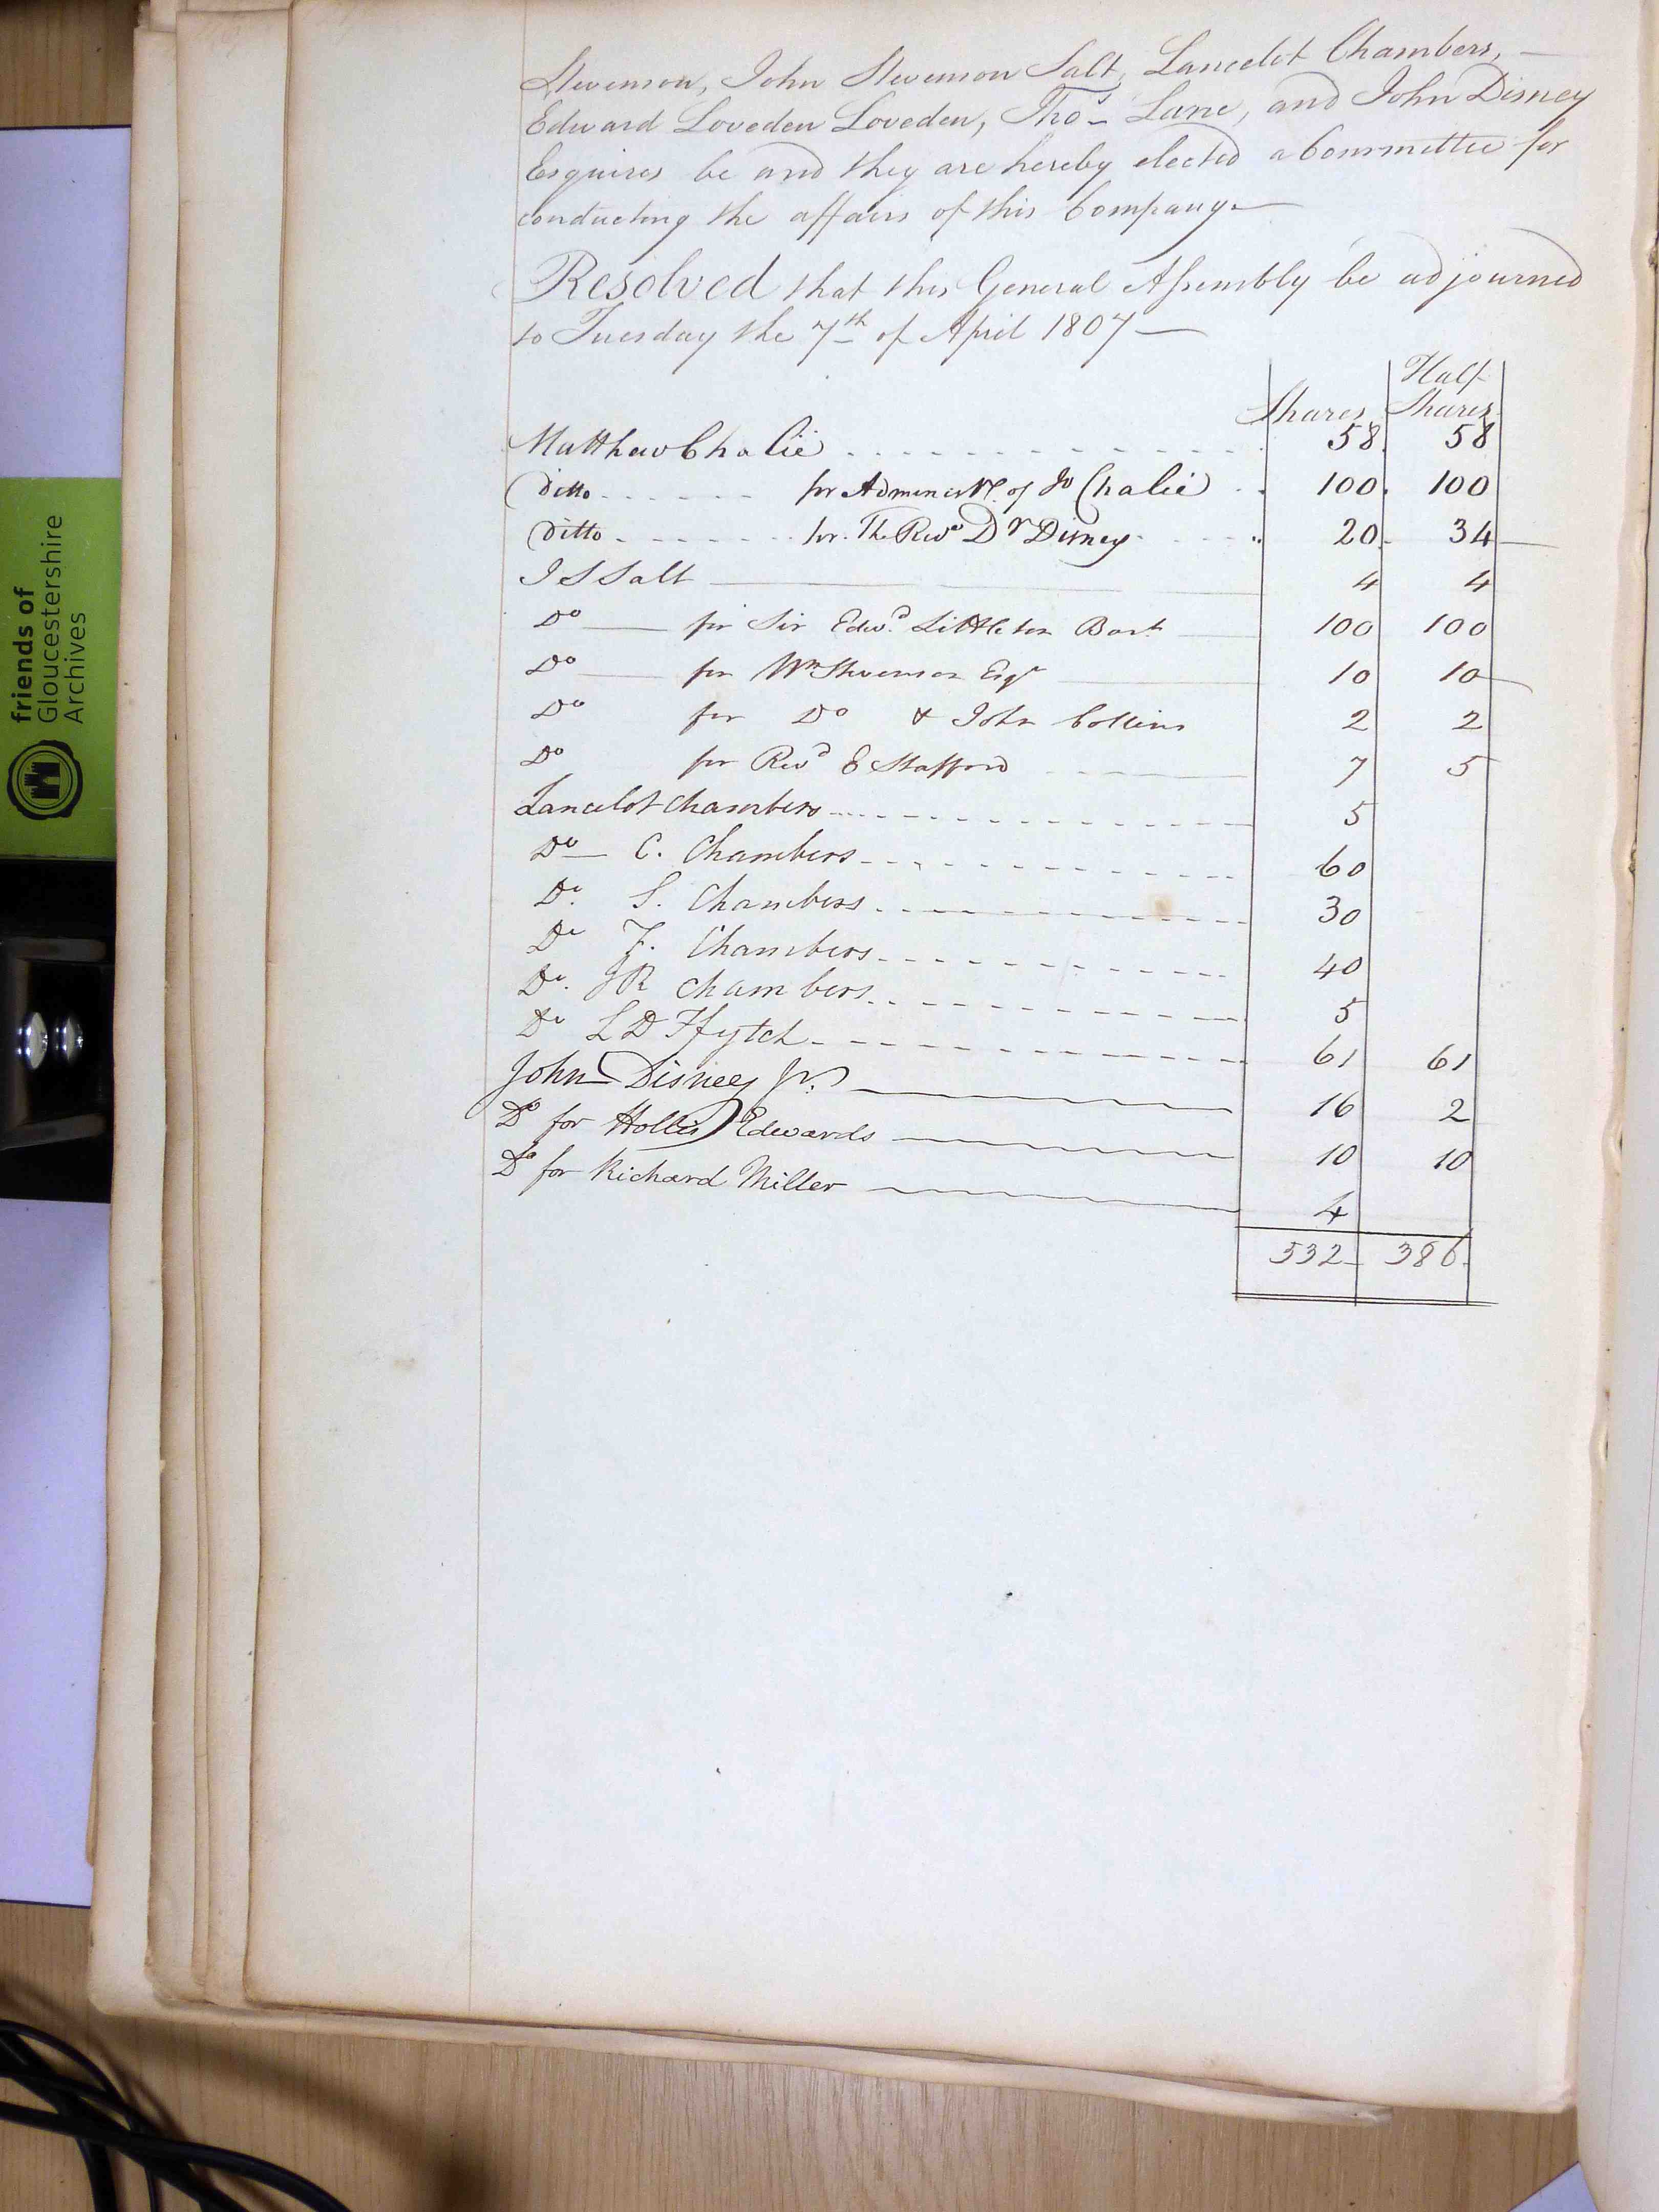 Stevenson, John Stevenson Salt, Lancelot Chambers,
Edward Loveden Loveden, Thos Lane, and John Disney
Esquires be and they are hereby elected a Committee for
conducting the affairs of this Company
Resolved that this General Assembly be adjourned
to Tuesday the 7th of April 1807
Shares Half Shares
Matthew Chalié 58 58
Ditto for Administr. of Jo Chalié 100 100
Ditto for The Revd Dr Disney 20 34
J S Salt 4 4
Do for Sir Edwd Littleton Bart 100 100
Do for Wm Stevenson Esqr 10 10
Do for Do & John Collins 2 2
Do for Revd E Stafford 7 5
Lancelot Chambers 5
Do C. Chambers 60
Do S. Chambers 30
Do F. Chambers 40
Do JR Chambers 5
Do L D Ffytch 61 61
John Disney Jr. 16 2
Do for Hollis Edwards 10 10
Do for Richard Miller 4
532 386
friends of
Gloucestershire
Archives